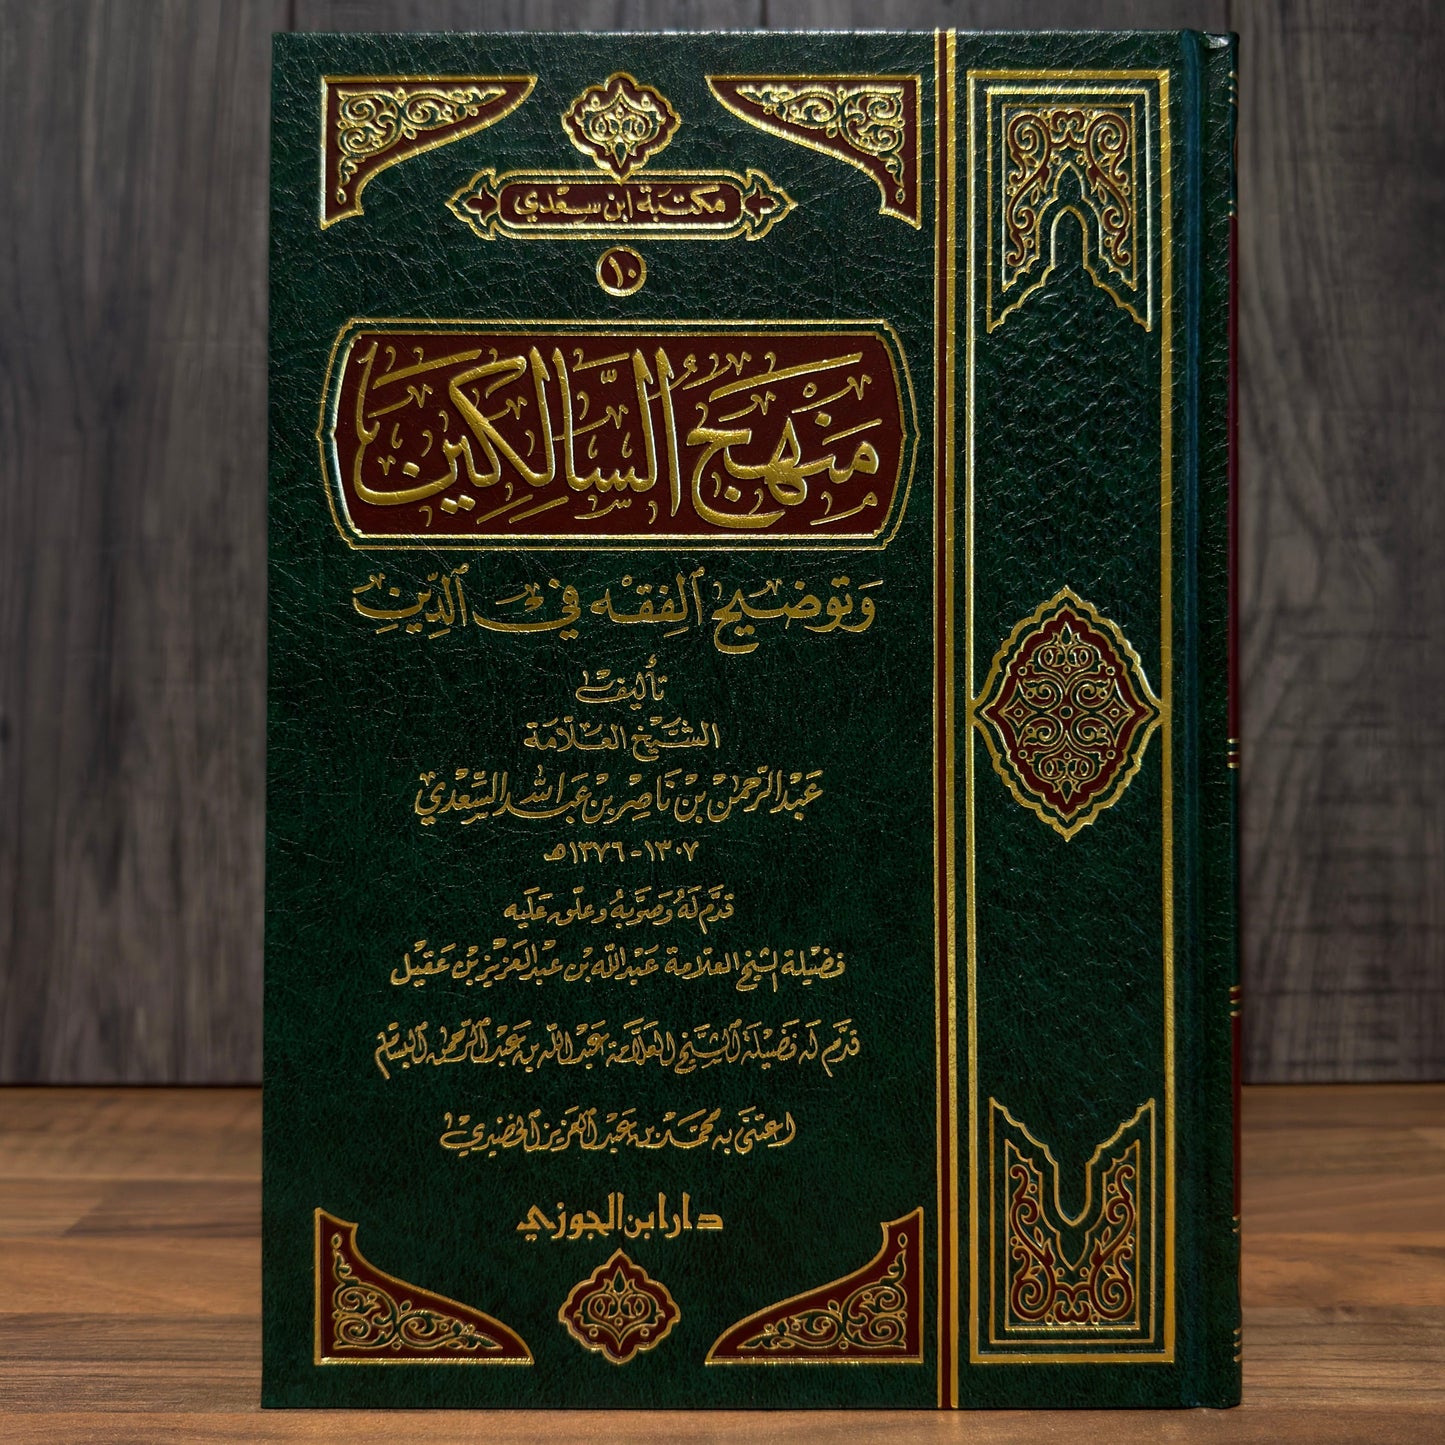 مكتبة ابن سعدي
١٠
مَنْهَجُ السَّالِكِين
وَتوضيح الفِقه في الدِّين
تأليف
الشَّيْخ العَلَّامَة
عَبْدالرَّحمٰن بْن نَاصِر بْن عَبْد اللّٰه السَّعْدي
١٣٠٧-١٣٧٦هـ
قدَّم لَهُ وَصَوَّبهُ وعلّق عَليه
فضيلة الشيخ العلّامة عَبْداللّه بن عبْدالعَزيز بن عَقيْل
قدَّم له فضيلة الشَّيخ العَلَّامة عَبْداللّه بن عَبْدالرَّحمن البسَّام
اعتنى به محمّد بن عَبْدالعَزيز الخضيري
دار ابن الجوزي